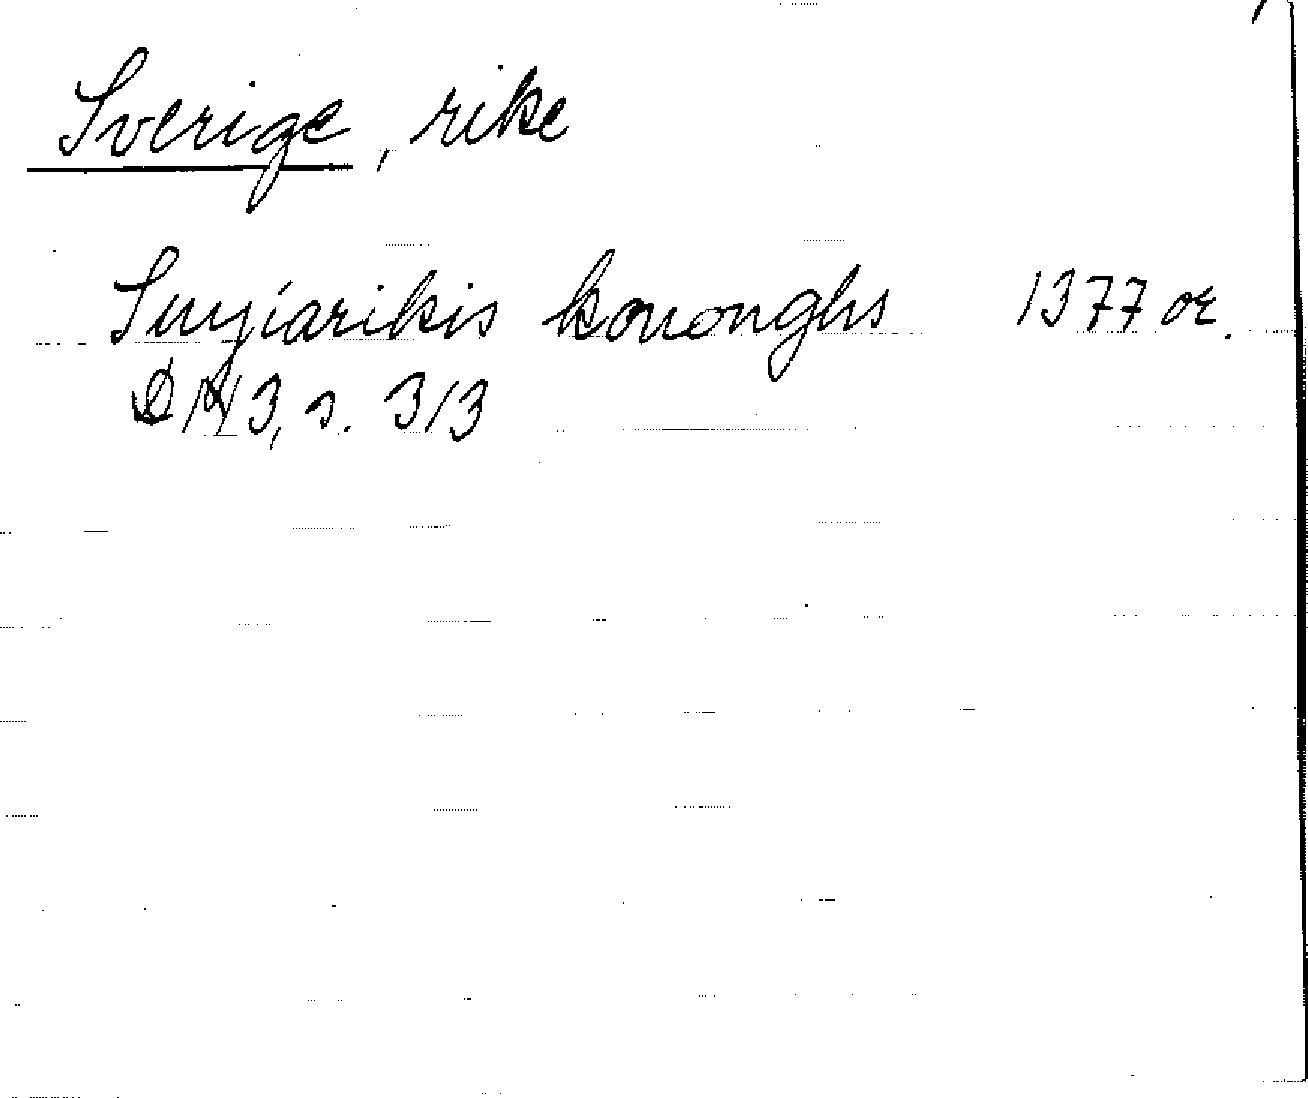 Sverige, rike
Suyiarikis kononghs 1377 or.
DN 3, s. 313